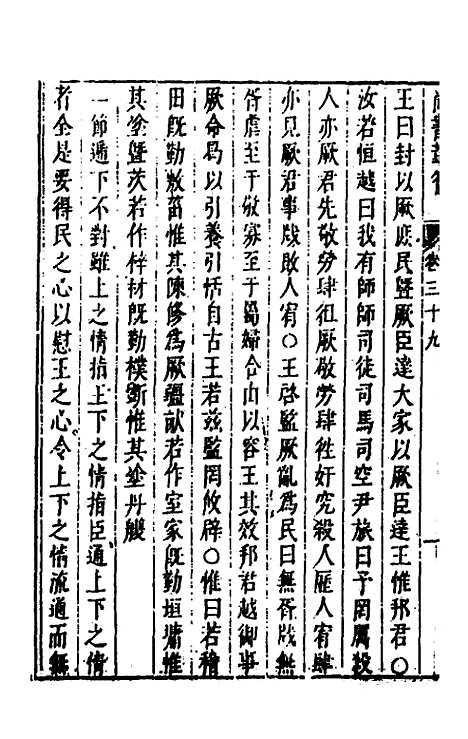 卷三十九
王曰封以厥庶民暨厥臣達大家以厥臣達王惟邦君○
汝若恒越曰我有師師司徒司馬司空尹旅曰予罔厲殺
人亦厥君先敬勞肆徂厥敬勞肆往姦宄殺人歷人宥肆
亦見厥君事戕敗人宥○王啓監厥亂爲民曰無胥戕無
胥虐至于敬寡至于屬婦合由以容王其效邦君越御事
厥命曷以引養引恬自古王若茲監罔攸辟○惟曰若稽
田旣勤敷菑惟其陳修爲厥疆畎若作室家旣勤垣墉惟
其塗墍茨若作梓材旣勤樸斲惟其塗丹雘
一節遞下不對雖上之情指上下之情指臣通上下之情
者全是要得民之心以慰王之心令上下之情流通而無